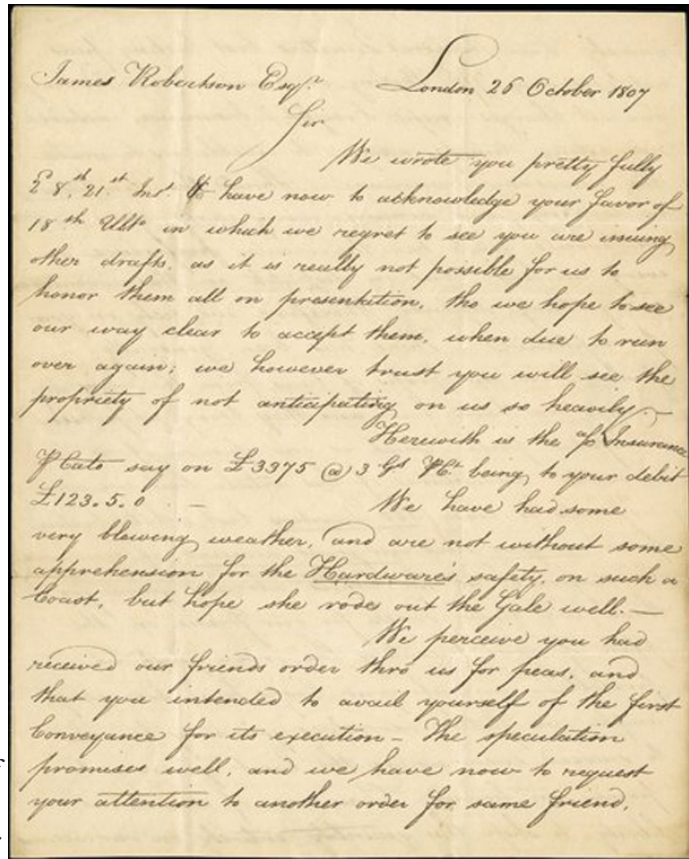 James Robertson Esqr.
London 26 October 1807
Sir
We wrote you pretty fully
8th. 21st. Inst. & have now to acknowledge your favor of
18th Ulto in which we regret to see you are issuing
other drafts, as it is really not possible for us to
honor them all on presentation, tho we hope to see
our way clear to accept them, when due to run
over again; we however trust you will see the
propriety of not anticipating on us so heavily.—
Herewith is the a/c Insurance
P Cato say on £3375 @ 3 Gs P Ct. being to your debit
£123.5.0 —
We have had some
very blowing weather, and are not without some
apprehension for the Hardware's safety, on such a
Coast, but hope she rode out the Gale well.—
We perceive you had
received our friends order thro us for peas, and
that you intended to avail yourself of the first
Conveyance for its execution— The speculation
promises well, and we have now to request
your attention to another order for same friend,